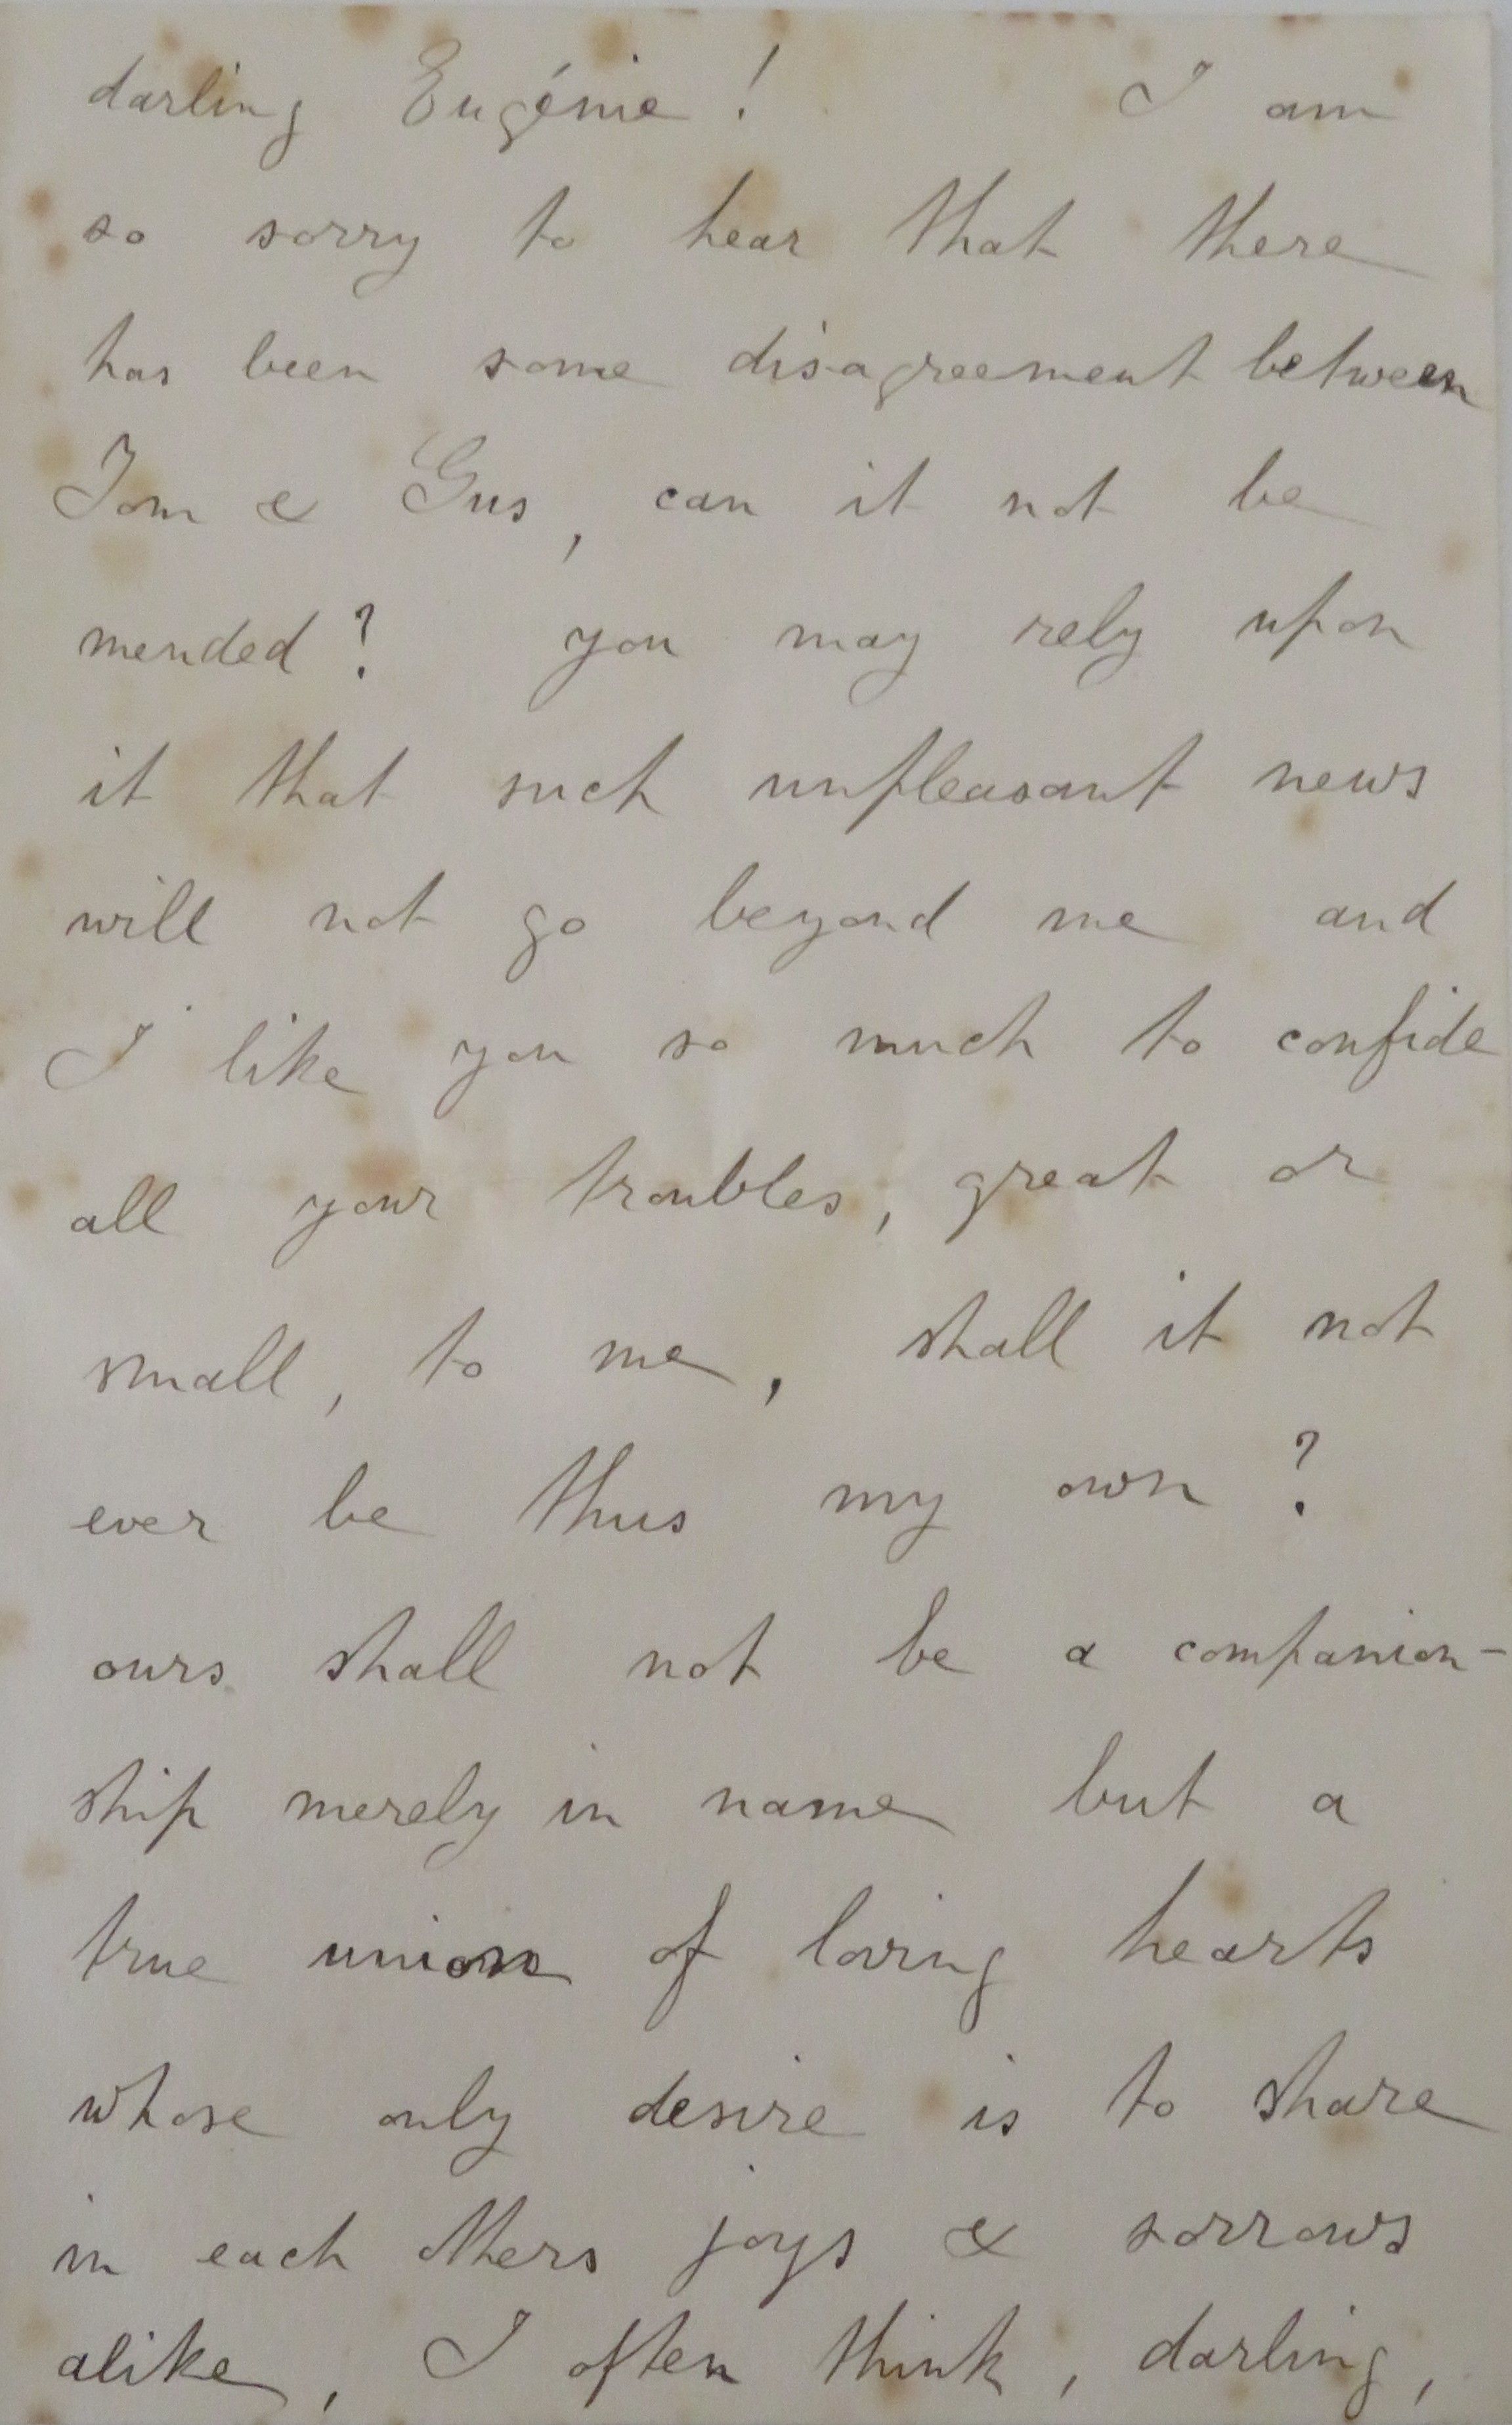 darling Eugénie! I am
so sorry to hear that there
has been some disagreement between
Tom & Gus, can it not be
mended? you may rely upon
it that such unpleasant news
will not go beyond me and
I like you so much to confide
all your troubles, great or
small, to me, shall it not
ever be thus my own?
ours shall not be a companion-
ship merely in name but a
true union of loving hearts
whose only desire is to share
in each others joys & sorrows
alike, I often think, darling,